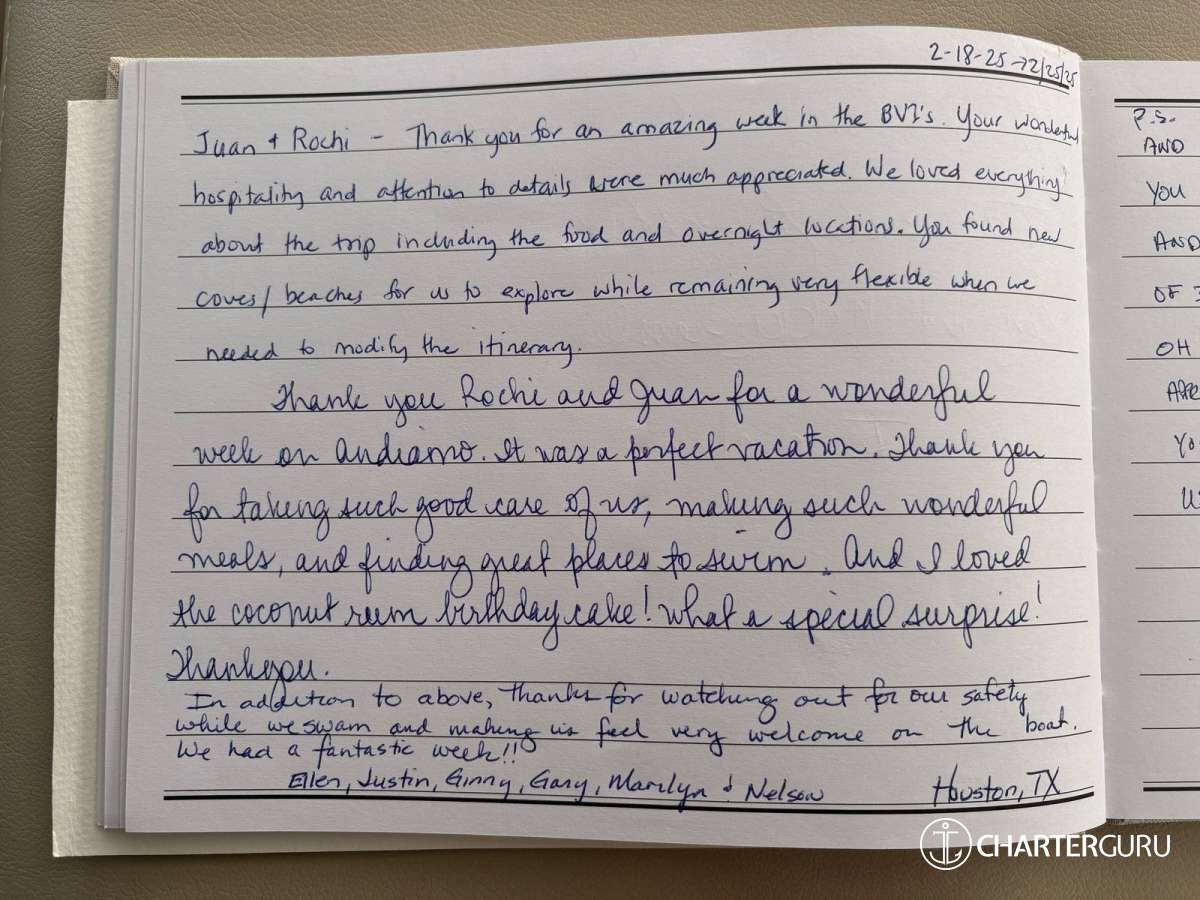 2-18-25 → 2/25/25
Juan + Rochi - Thank you for an amazing week in the BVI's. Your wonderful
hospitality and attention to details were much appreciated. We loved everything
about the trip including the food and overnight locations. You found new
coves/beaches for us to explore while remaining very flexible when we
needed to modify the itinerary.
Thank you Rochi and Juan for a wonderful
week on Andiamo. It was a perfect vacation. Thank you
for taking such good care of us, making such wonderful
meals, and finding great places to swim. And I loved
the coconut rum birthday cake! What a special surprise!
Thankyou.
In addition to above, thanks for watching out for our safety
while we swam and making us feel very welcome on the boat.
We had a fantastic week!!
Ellen, Justin, Ginny, Gary, Marilyn & Nelson Houston, TX
P.S.
AND
YOU
AND
OF
OH
CHARTERGURU